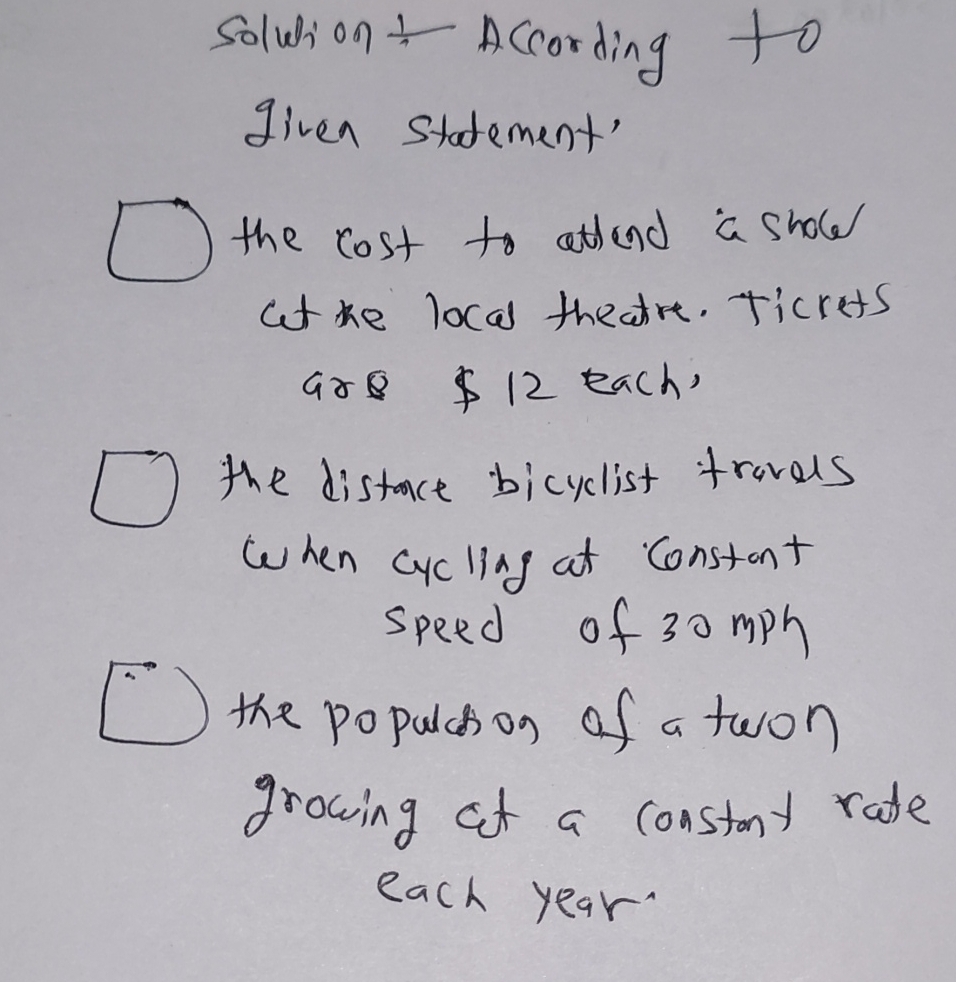 Solution :- According to
given statement,
the cost to attend a show
at the local theatre. Tickets
are $ 12 each,
the distance bicyclist travels
when cycling at constant
speed of 30 mph
the population of a twon
growing at a constant rate
each year.